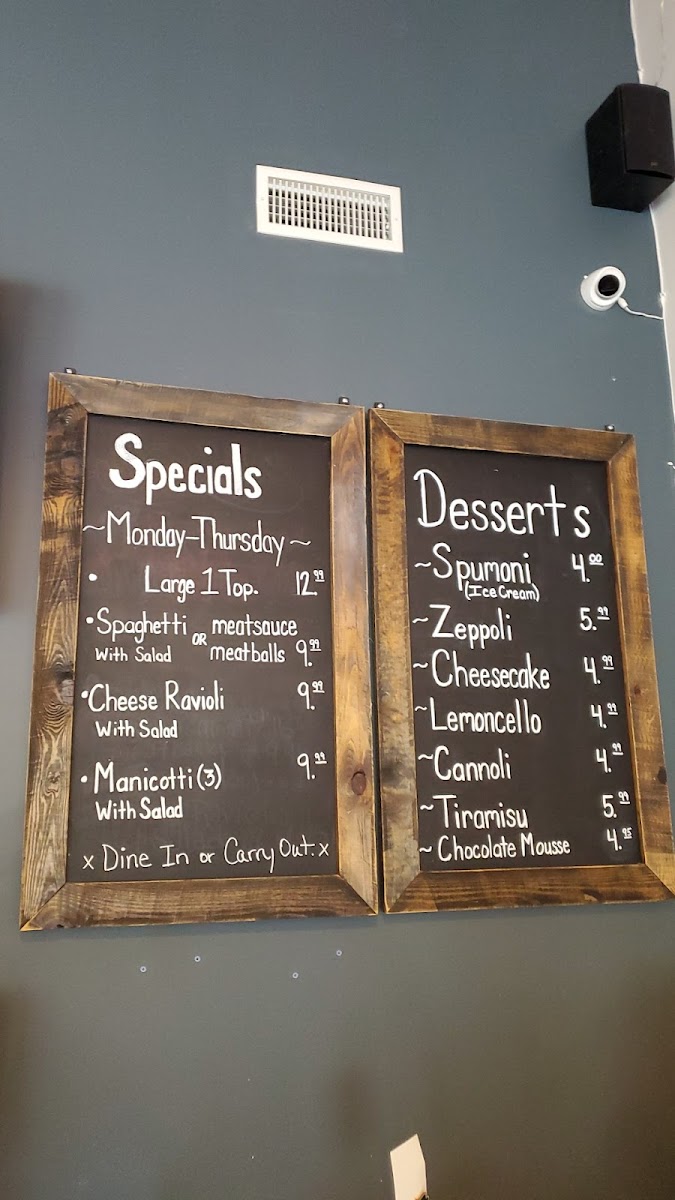 Specials
~Monday-Thursday~
• Large 1 Top. 12.99
• Spaghetti OR meatsauce
With Salad meatballs 9.99
• Cheese Ravioli 9.99
With Salad
• Manicotti (3) 9.99
With Salad
x Dine In or Carry Out. x
Desserts
~Spumoni 4.00
(Ice Cream)
~Zeppoli 5.99
~Cheesecake 4.99
~Lemoncello 4.99
~Cannoli 4.99
~Tiramisu 5.99
~Chocolate Mousse 4.95